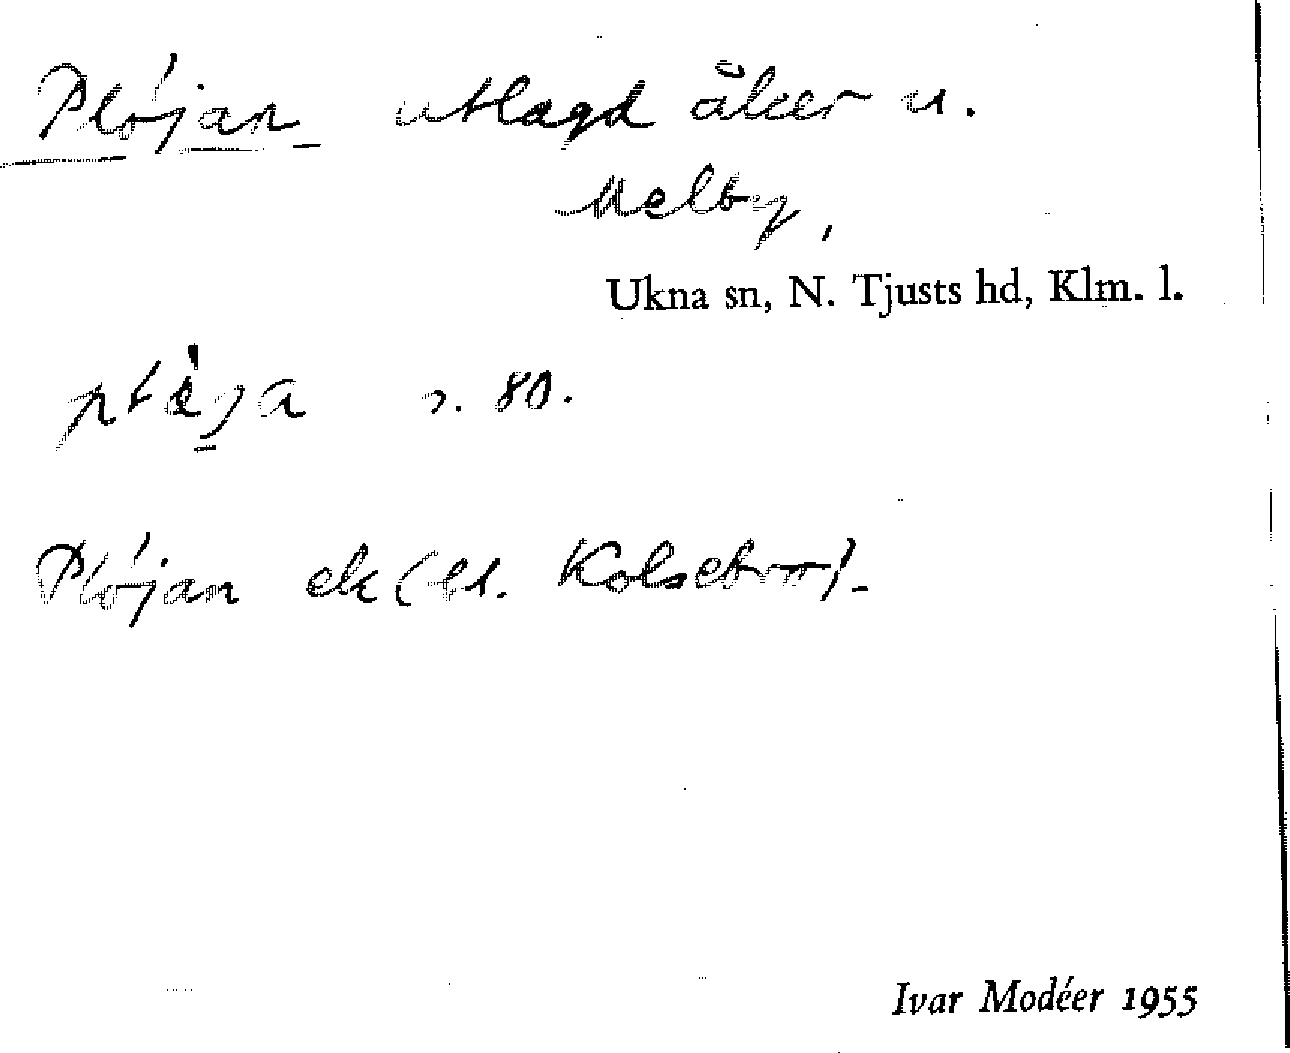 Plöjan utlagd åker u.
Melby,
Ukna sn, N. Tjusts hd, Klm. l.
s. 80.
Plöjan ek (bl.
Ivar Modéer 1955